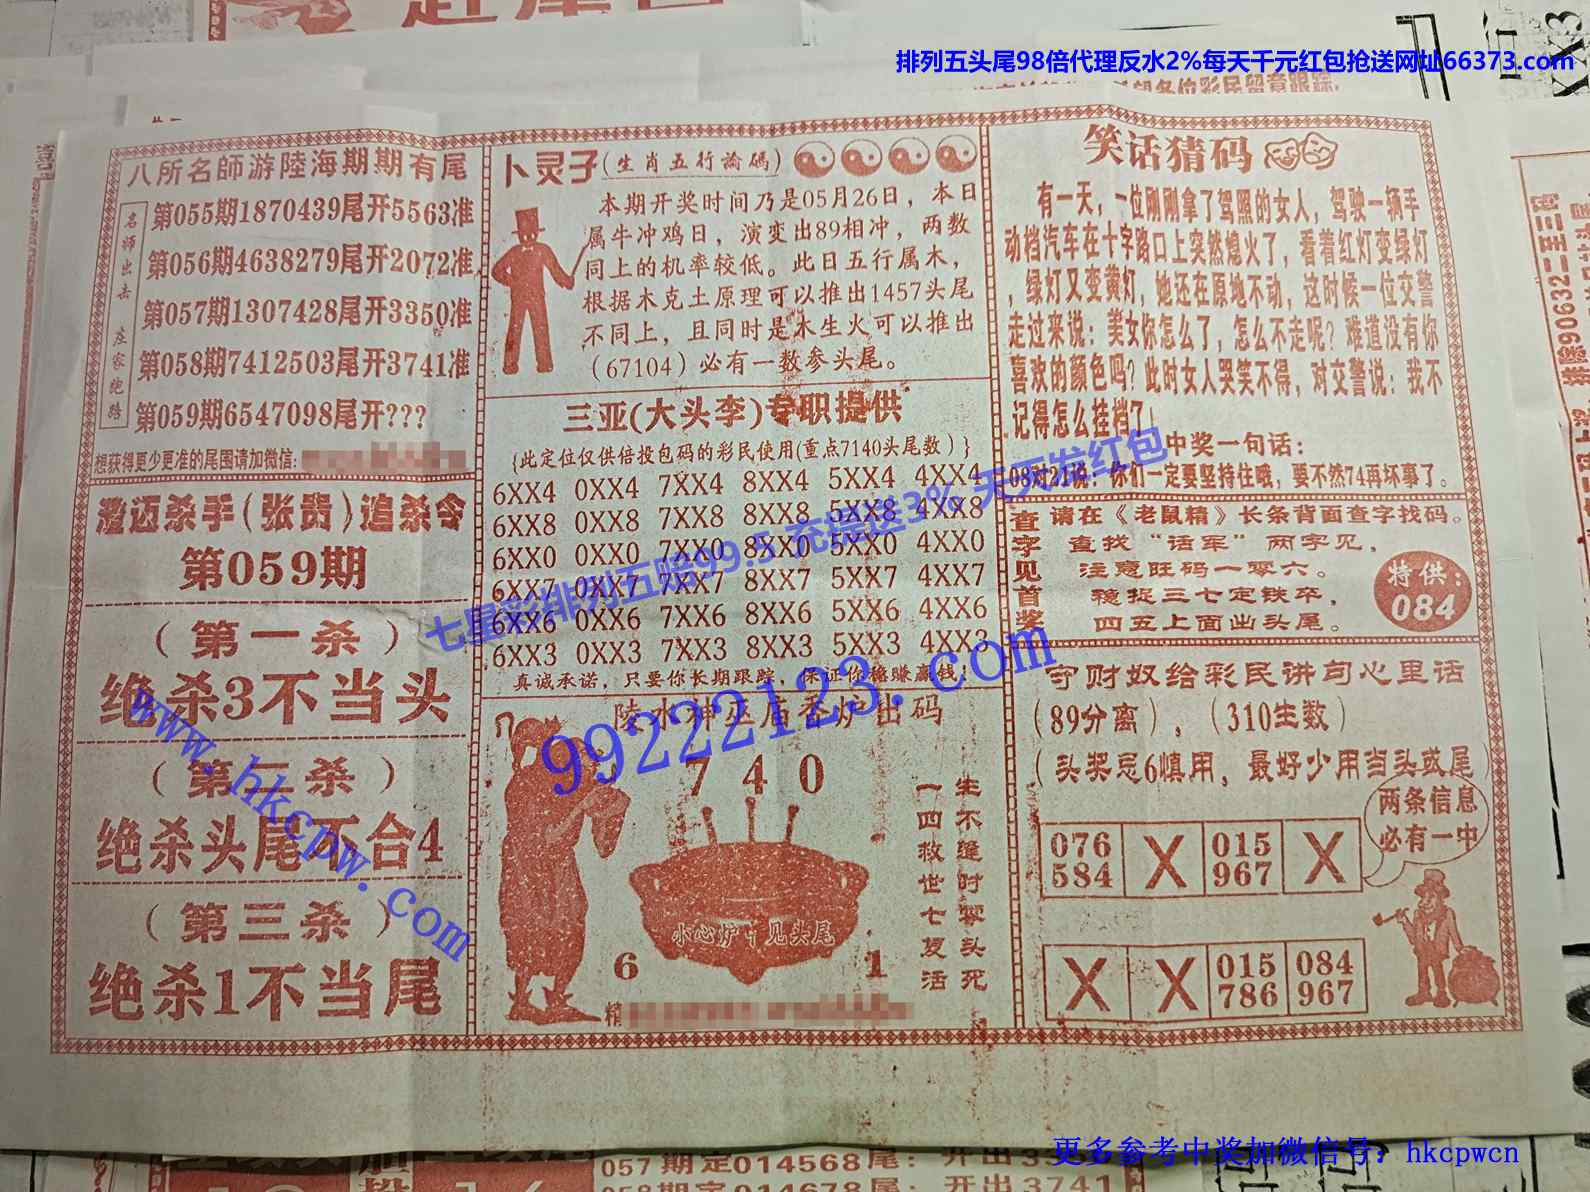 排列五头尾98倍代理反水2%每天千元红包抢送网址66373.com
八所名師游陸海期期有尾
名师出击 庄家跑路
第055期1870439尾开5563准
第056期4638279尾开2072准
第057期1307428尾开3350准
第058期7412503尾开3741准
第059期6547098尾开???
想获得更少更准的尾围请加微信:
澄迈杀手(张贵)追杀令
第059期
(第一杀)
绝杀3不当头
(第二杀)
绝杀头尾不合4
(第三杀)
绝杀1不当尾
卜灵子(生肖五行論碼)
本期开奖时间乃是05月26日，本日
属牛冲鸡日，演变出89相冲，两数
同上的机率较低。此日五行属木，
根据木克土原理可以推出1457头尾
不同上，且同时是木生火可以推出
(67104)必有一数参头尾。
三亚(大头李)专职提供
{此定位仅供倍投包码的彩民使用(重点7140头尾数)}
6XX4 0XX4 7XX4 8XX4 5XX4 4XX4
6XX8 0XX8 7XX8 8XX8 5XX8 4XX8
6XX0 0XX0 7XX0 8XX0 5XX0 4XX0
6XX7 0XX7 7XX7 8XX7 5XX7 4XX7
6XX6 0XX6 7XX6 8XX6 5XX6 4XX6
6XX3 0XX3 7XX3 8XX3 5XX3 4XX3
真诚承诺，只要你长期跟踪，保证你稳赚赢钱！
陆水神巫庙香炉出码
7 4 0
生不逢时零头死
一四救世七复活
小心炉十见头尾
6
1
精
笑话猜码
有一天，一位刚刚拿了驾照的女人，驾驶一辆手
动档汽车在十字路口上突然熄火了，看着红灯变绿灯
，绿灯又变黄灯，她还在原地不动，这时候一位交警
走过来说：美女你怎么了，怎么不走呢？难道没有你
喜欢的颜色吗？此时女人哭笑不得，对交警说：我不
记得怎么挂档了！
中奖一句话：
08对21说：你们一定要坚持住哦，要不然74再坏事了。
查字见首奖
请在《老鼠精》长条背面查字找码。
查找“话军”两字见，
注意旺码一零六。
稳捉三七定铁卒，
四五上面出头尾。
特供：
084
守财奴给彩民讲句心里话
(89分离)，(310生数)
(头奖忌6慎用，最好少用当头或尾)
两条信息
必有一中
076 X 015 X
584 967
X X 015 084
786 967
七星彩排列五赔99.5 充提送3% 天天发红包
99222123.com
www.hkcpw.com
更多参考中奖加微信号：hkcpwcn
057期定014568尾：